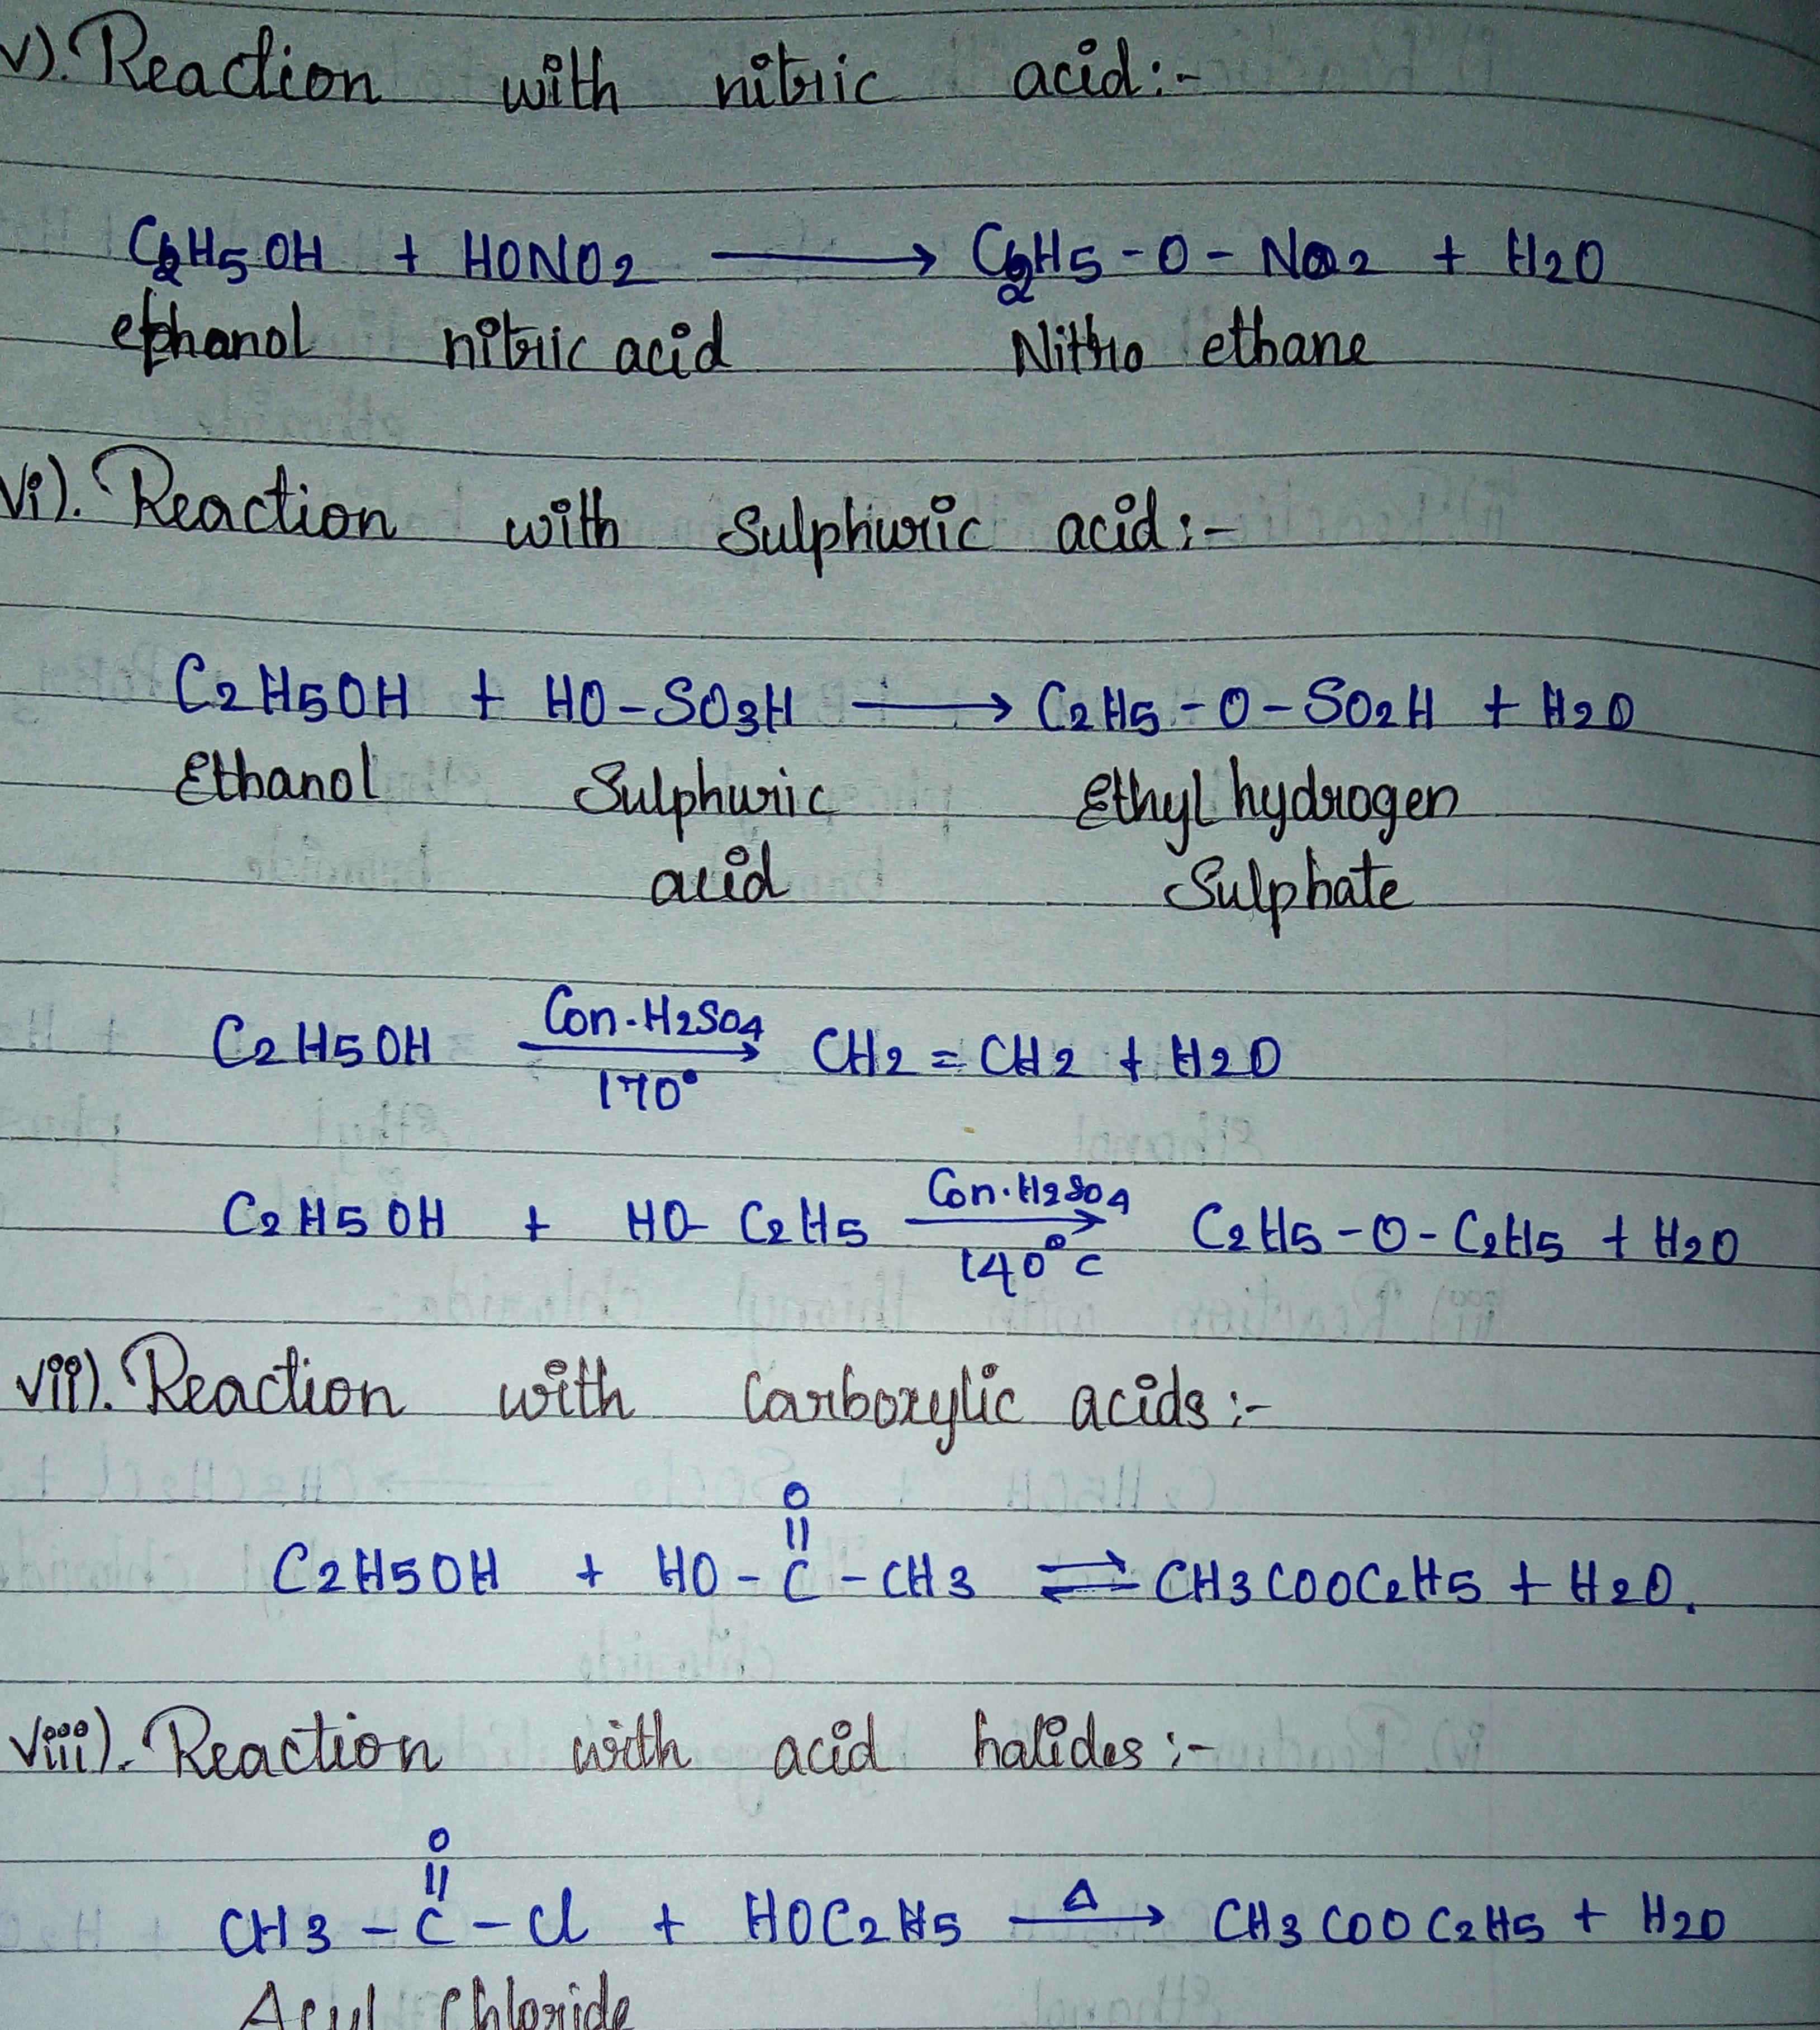 v). Reaction with nitric acid:-
C2H5OH + HONO2 ⟶ C2H5-O-NO2 + H2O
ethanol nitric acid Nitro ethane
vi). Reaction with Sulphuric acid:-
C2H5OH + HO-SO3H ⟶ C2H5-O-SO2H + H2O
Ethanol Sulphuric Ethyl hydrogen
acid Sulphate
Con. H2SO4
C2H5OH ⟶ CH2=CH2 + H2O
170°
Con. H2SO4
C2H5OH + HO-C2H5 ⟶ C2H5-O-C2H5 + H2O
140°C
vii). Reaction with Carboxylic acids:-
O
||
C2H5OH + HO-C-CH3 ⇌ CH3COOC2H5 + H2O.
viii). Reaction with acid halides:-
O
||
CH3-C-Cl + HOC2H5 ⟶ CH3COOC2H5 + H2O
Δ
Acyl Chloride